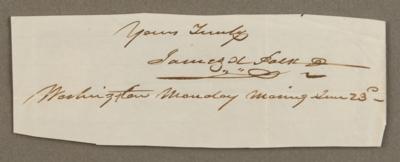 Yours Truly
James K Polk
Washington Monday Morning June 23d